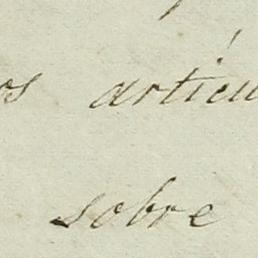 os artícu
sobre